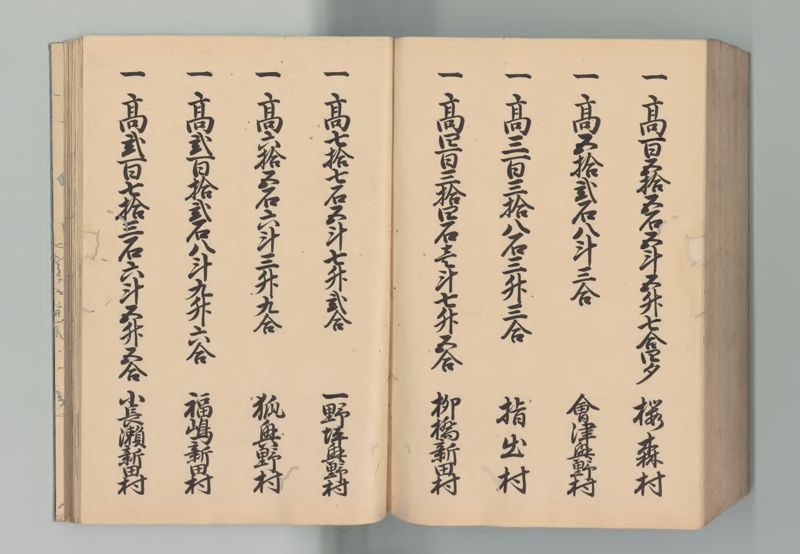 一 高百五拾五石五斗五升七合四夕 桜森村
一 高五拾弐石八斗三合 會津興野村
一 高三百三拾八石三升三合 指出村
一 高四百三拾四石壱斗七升五合 柳橋新田村
一 高七拾七石五斗七升弐合 一野坪興野村
一 高六拾五石六斗三升九合 狐興野村
一 高弐百拾弐石八斗九升六合 福嶋新田村
一 高弐百七拾三石六斗五升五合 小長瀬新田村